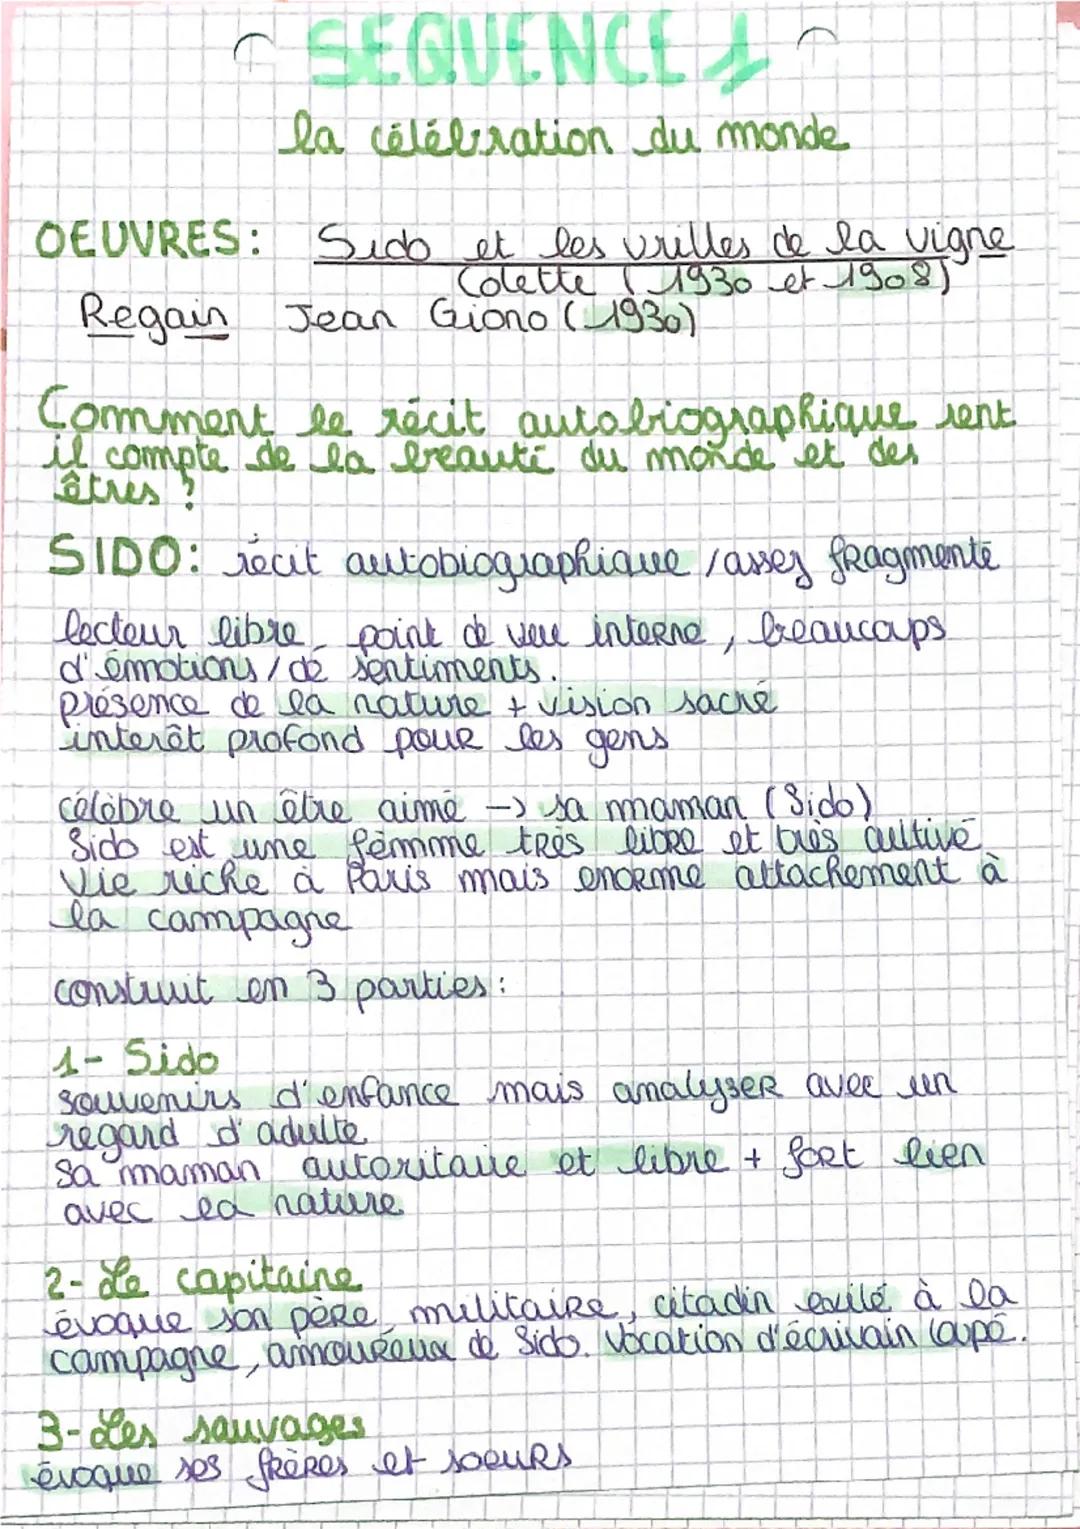 SEQUENCE 1
la célébration du monde
OEUVRES: Sido et les vrilles de la vigne
Colette (1930 et 1908)
Regain Jean Giono (1930)
Comment le récit autobiographique rent
il compte de la beauté du monde et des
êtres ?
SIDO: récit autobiographique /assez fragmenté
lecteur libre, point de vue interne, beaucoups
d'émotions/de sentiments.
présence de la nature + vision sacré
interêt profond pour les gens
célèbre un être aimé -> sa maman (Sido)
Sido est une femme très libre et très cultivé
vie riche à Paris mais enorme attachement à
la campagne
construit en 3 parties:
1- Sido
souvenirs d'enfance mais analyser avec un
regard d'adulte
sa maman autoritaire et libre + fort lien
avec la nature
2- Le capitaine
évoque son père, militaire, citadin exilé à la
campagne, amoureux de Sido. Vocation d'écrivain loupé.
3- Les sauvages
évoque ses frères et soeurs